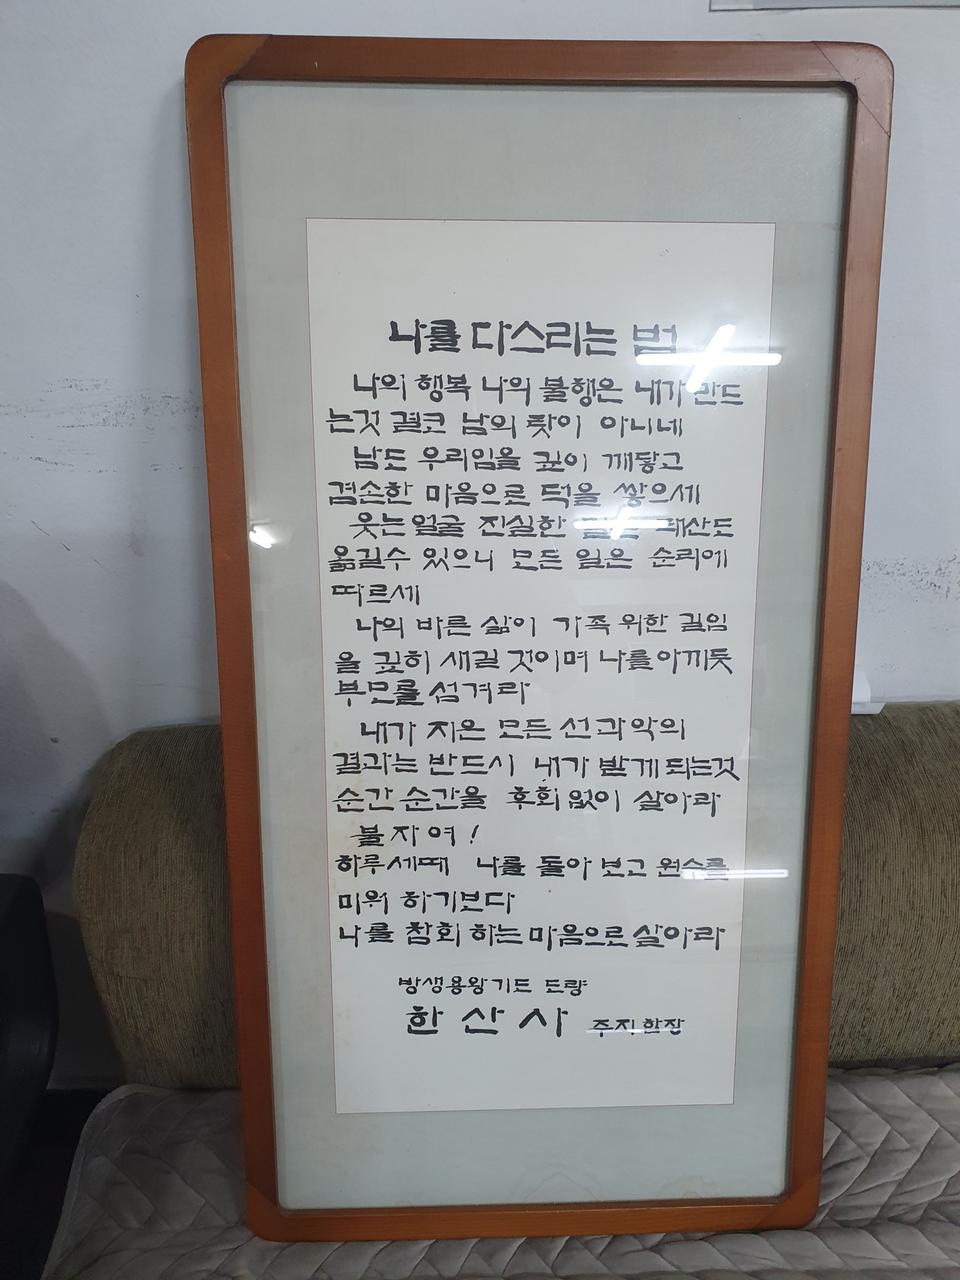 나를 다스리는 법
나의 행복 나의 불행은 내가 만드
는것 결코 남의 탓이 아니네
남도 우리임을 깊이 깨닿고
겸손한 마음으로 덕을 쌓으세
웃는얼굴 진실한 태산도
옮길수 있으니 모든 일은 순리에
따르세
나의 바른 삶이 가족 위한 길임
을 깊히 새길 것이며 나를아끼듯
부모를 섬겨라
내가 지은 모든 선과악의
결과는 반드시 내가 받게되는것
순간 순간을 후회없이 살아라
불자여!
하루세때 나를 돌아 보고 원수를
미워 하기보다
나를 참회 하는마음으로 살아라
방생용왕기도 도량
한산사 주지한장